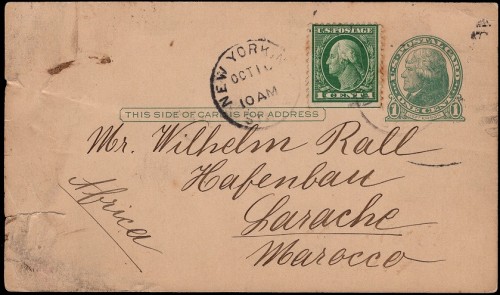 NEW YORK, N
OCT 1
10 AM
U.S. POSTAGE
1 CENT 1
1 1
THIS SIDE OF CARD IS FOR ADDRESS
Mr. Wilhelm Rall
Hafenbau
Larache
Marocco
Africa